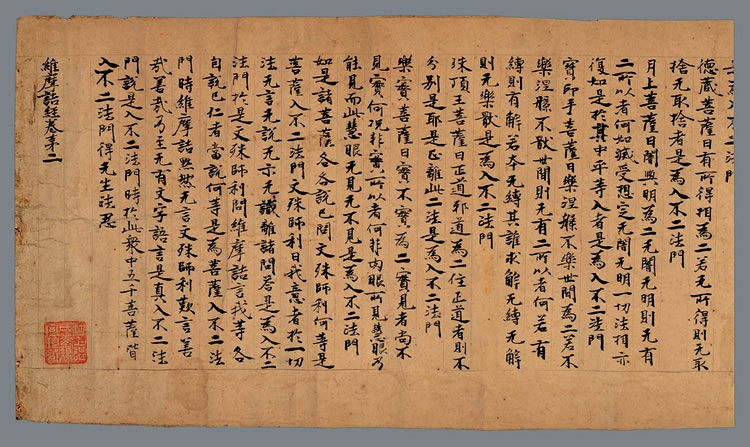 入不二法門
德藏菩薩曰有所得相為二若无所得則无取
捨无取捨者是為入不二法門
月上菩薩曰闇與明為二无闇无明則无有
二所以者何如滅受想定无闇无明一切法相亦
復如是於其中平等入者是為入不二法門
寶印手菩薩曰樂涅槃不樂世間為二若不
樂涅槃不猒世間則无有二所以者何若有
縛則有解若本无縛其誰求解无縛无解
則无樂猒是為入不二法門
珠頂王菩薩曰正道邪道為二住正道者則不
分別是耶是正離此二法是為入不二法門
樂實菩薩曰實不實為二實見者尚不
見實何況非實所以者何非肉眼所見慧眼乃
能見而此慧眼无見无不見是為入不二法門
如是諸菩薩各各說已問文殊師利何等是
菩薩入不二法門文殊師利曰我意者於一切
法无言无說无示无識離諸問答是為入不二
法門於是文殊師利問維摩詰言我等各
自說已仁者當說何等是為菩薩入不二法
門時維摩詰默然无言文殊師利歎言善
哉善哉乃至无有文字語言是真入不二法
門說是入不二法門時於此眾中五千菩薩皆
入不二法門得无生法忍
維摩詰經卷第二